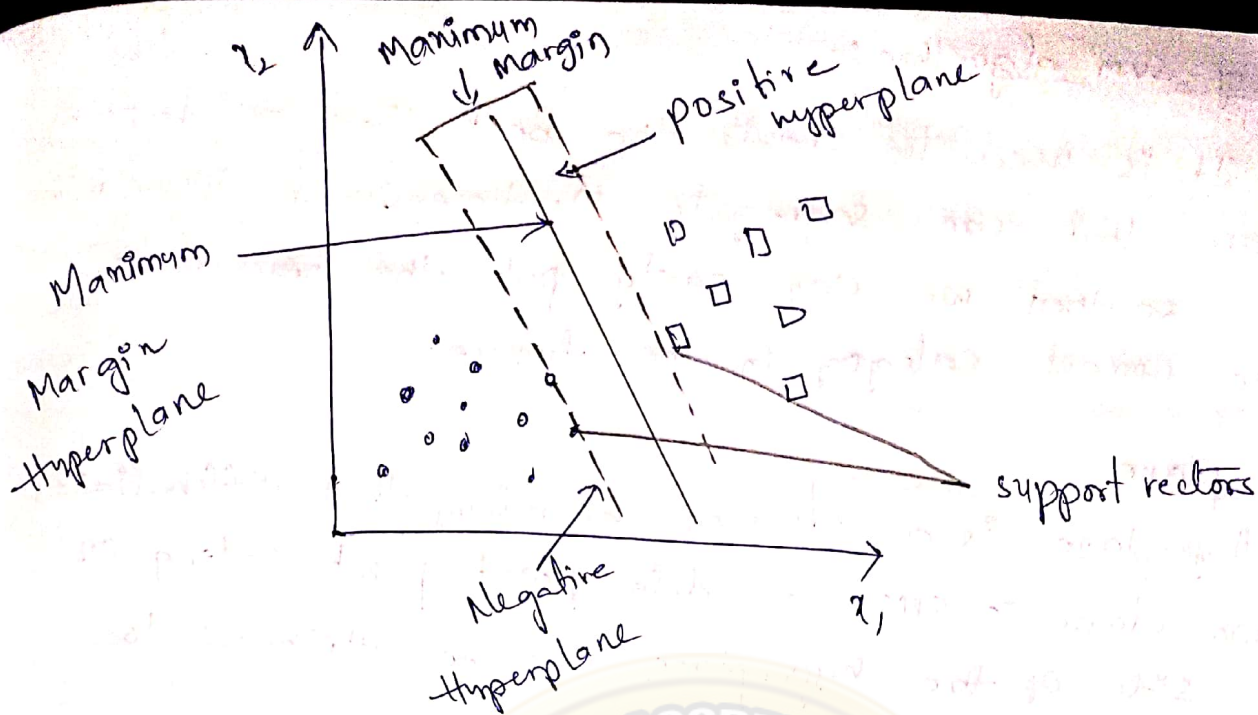 x₂
Maximum
Margin
positive
hyperplane
Maximum
Margin
Hyperplane
support vectors
Negative
Hyperplane
x₁